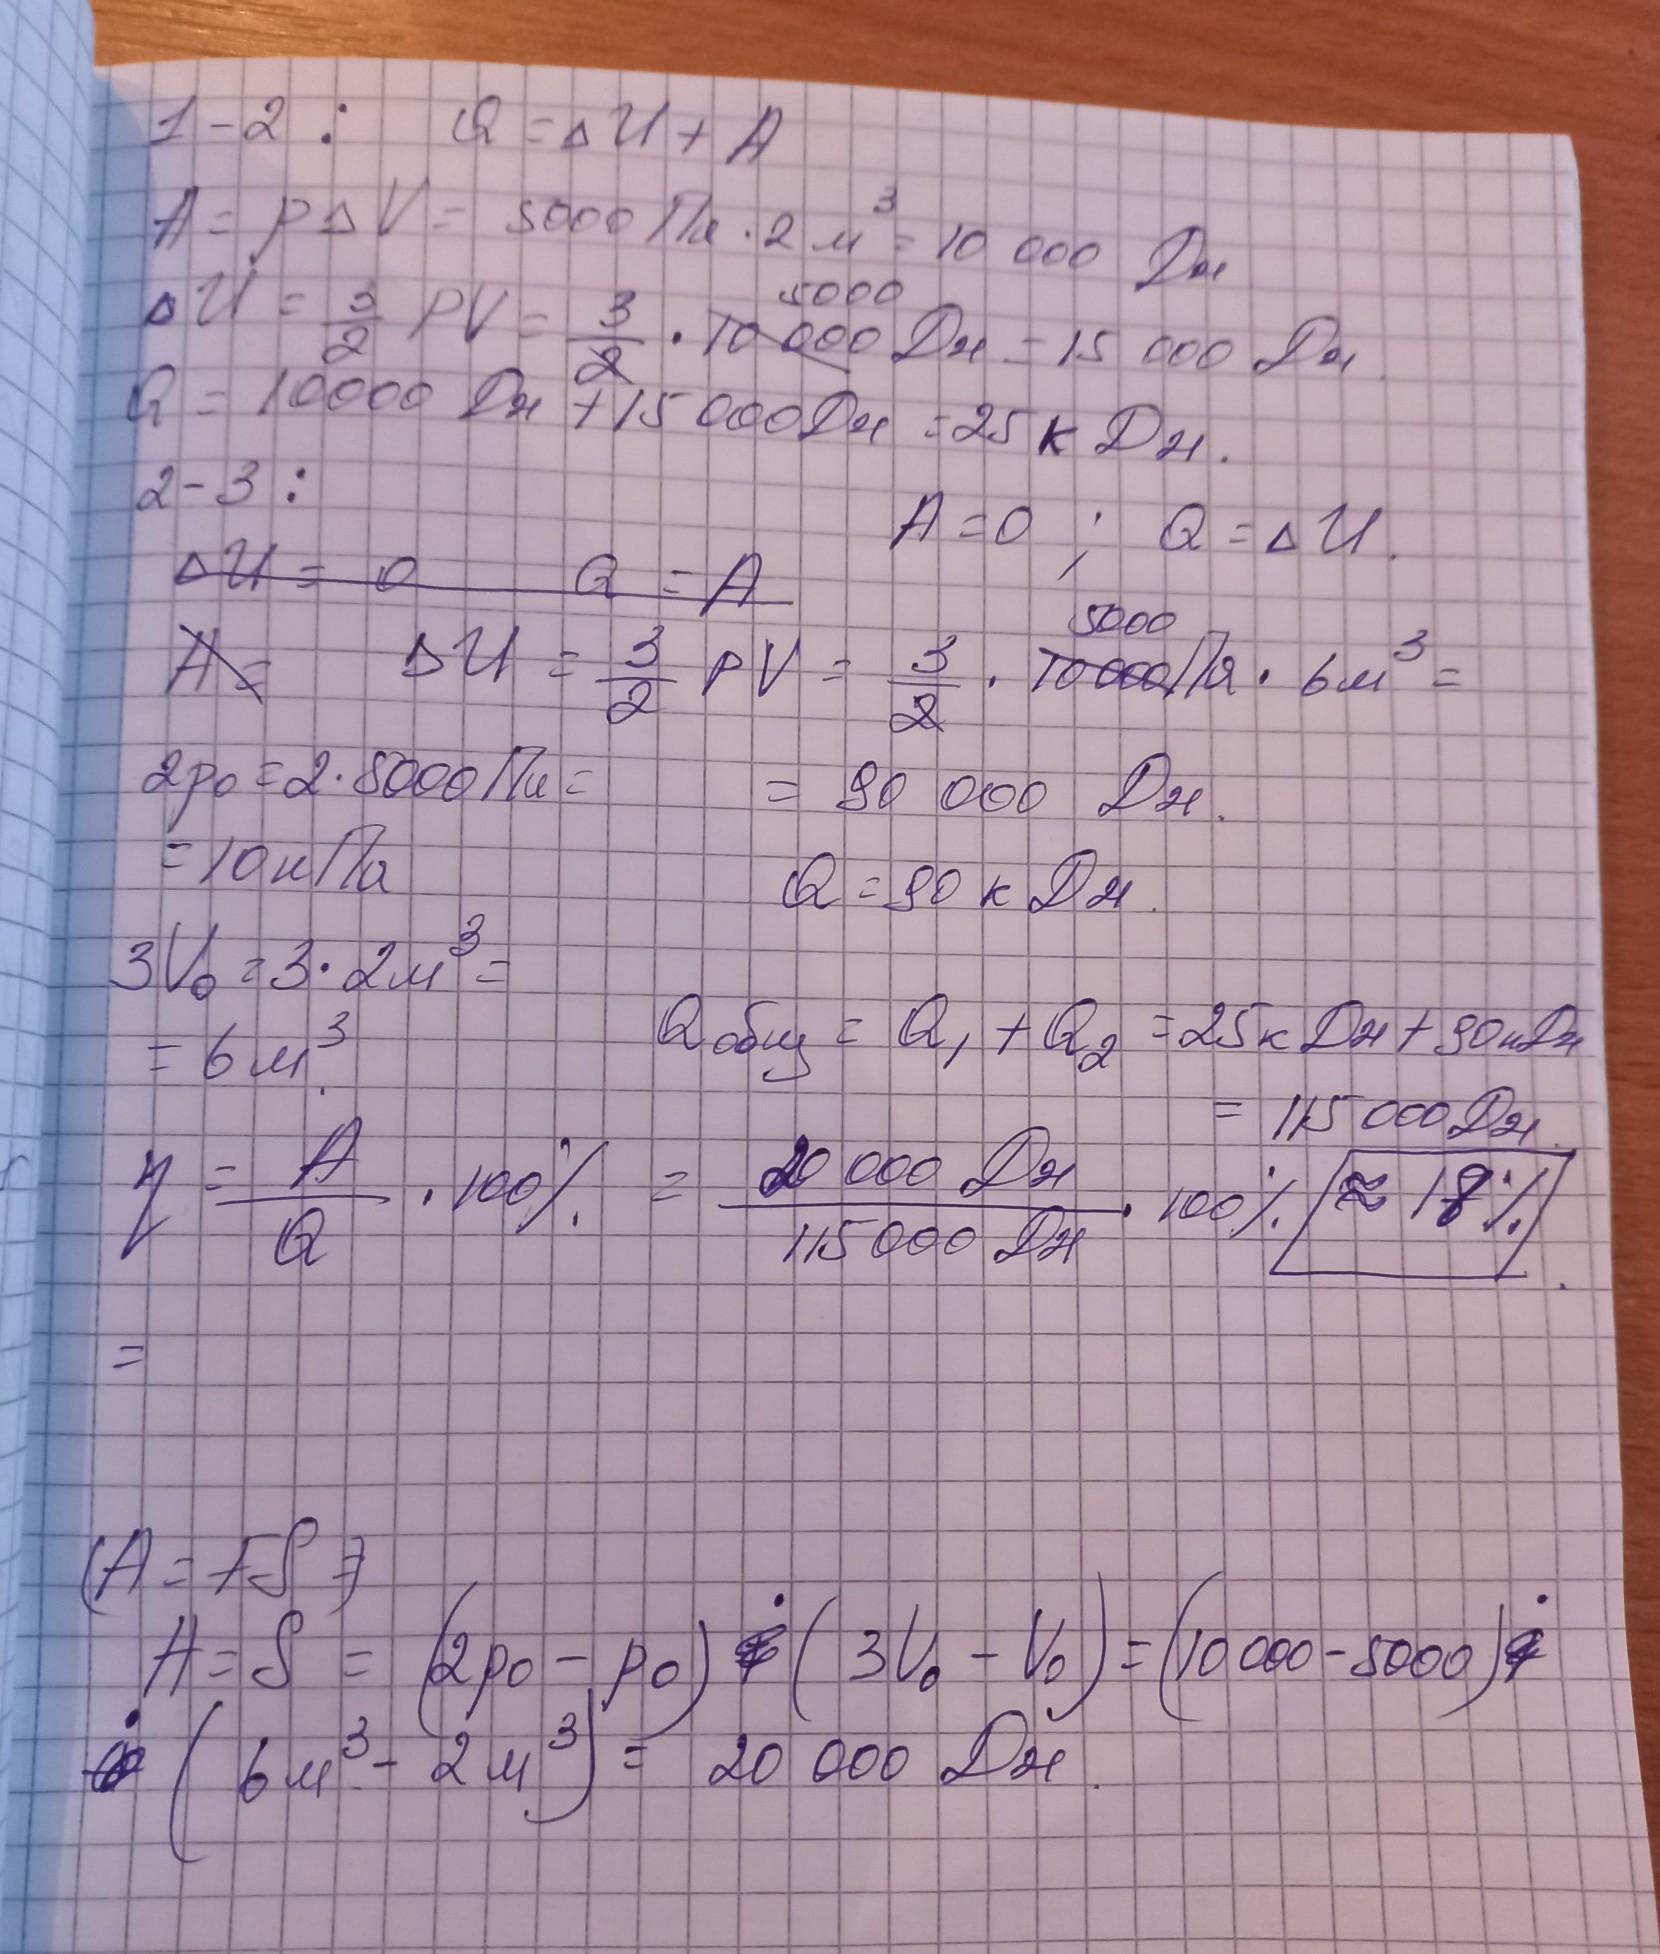 1-2: Q = ΔU + A
A = pΔV = 5000 Па · 2 м³ = 10 000 Дж
ΔU = 3/2 PV = 3/2 · 10 000 5000 Дж = 15 000 Дж.
Q = 10000 Дж + 15 000 Дж = 25 к Дж.
2-3:
A = 0 ; Q = ΔU.
ΔU = 0 Q = A
A = ΔU = 3/2 PV = 3/2 · 10000 5000 Па · 6 м³ =
2p₀ = 2 · 5000 Па = = 90 000 Дж.
= 10 кПа Q = 90 к Дж.
3V₀ = 3 · 2 м³ =
= 6 м³. Qобщ = Q₁ + Q₂ = 25 к Дж + 90 кДж
= 115 000 Дж.
η = A/Q · 100% = 20 000 Дж/115 000 Дж · 100% ≈ 18%.
=
(A = FS =)
A = S = (2p₀ - p₀) · (3V₀ - V₀) = (10 000 - 5000) ·
· (6 м³ - 2 м³) = 20 000 Дж.